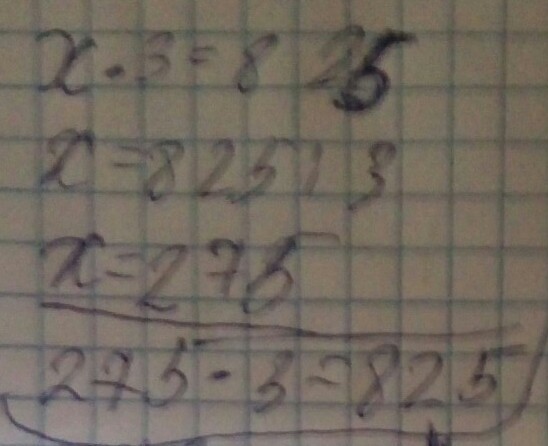 x·3=825
x=825:3
x=275
275·3=825